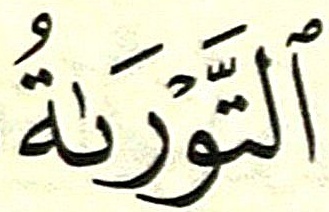 ٱلتَّوۡرَىٰةُ